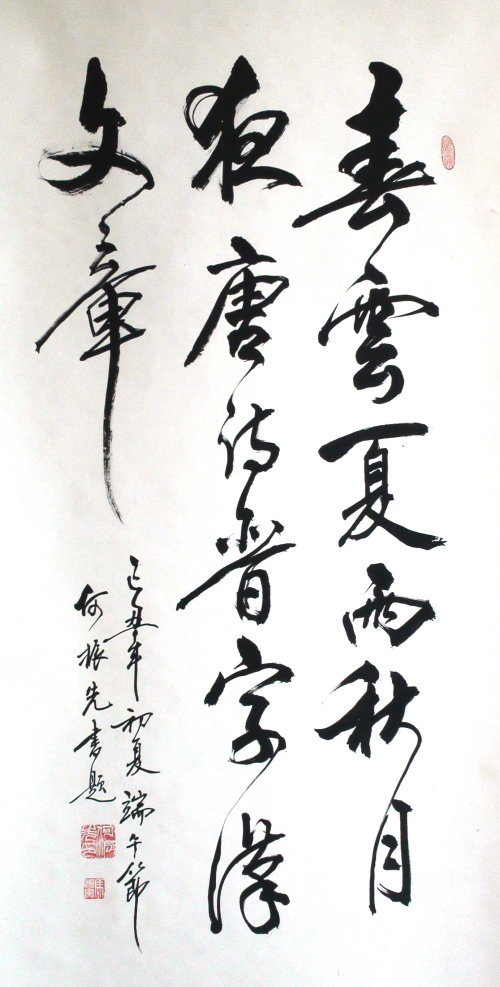 春雲夏雨秋月
夜唐诗晋字漢
文章
己丑年初夏端午節
何振先書題